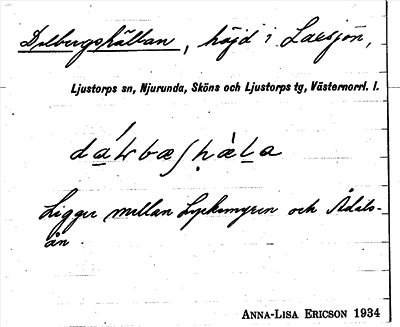 Dalbergshällan, höjd i Laxsjön,
Ljustorps sn, Njurunda, Sköns och Ljustorps tg, Västernorrl. l.
Ligger mellan Lyckemyren och Ådals-
ån.
ANNA-LISA ERICSON 1934